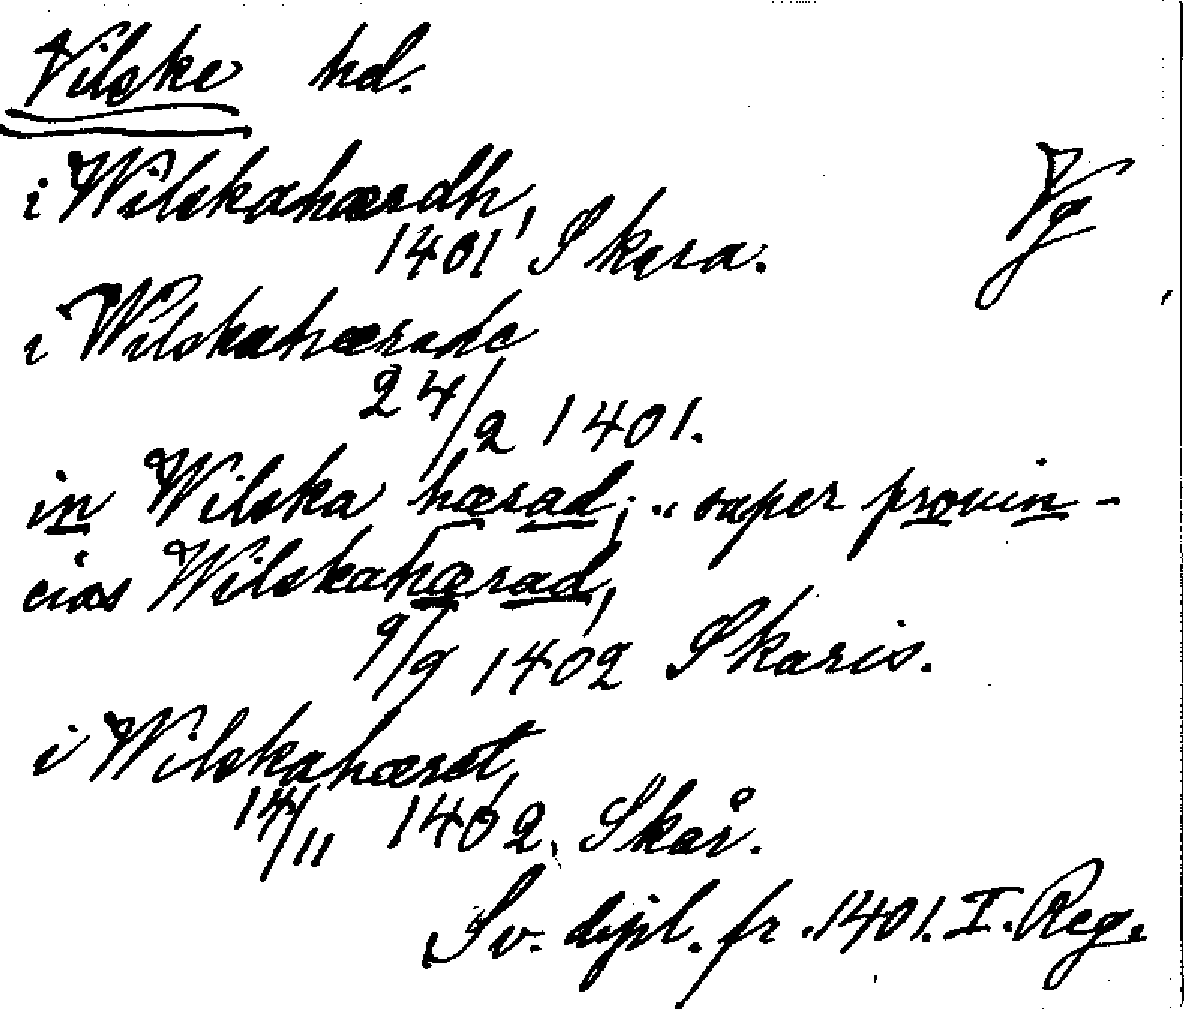 Vilske hd.
i Wilskahærdh,
Vg
1401 Skara.
i Wilskahærade
24/2 1401.
in Wilska hærad; „ super provin-
cias Wilskahærad,
9/9 1402 Skaris.
i Wilskahæret,
14/11 1402. Skår.
Sv. dipl. fr. 1401. I. Reg.